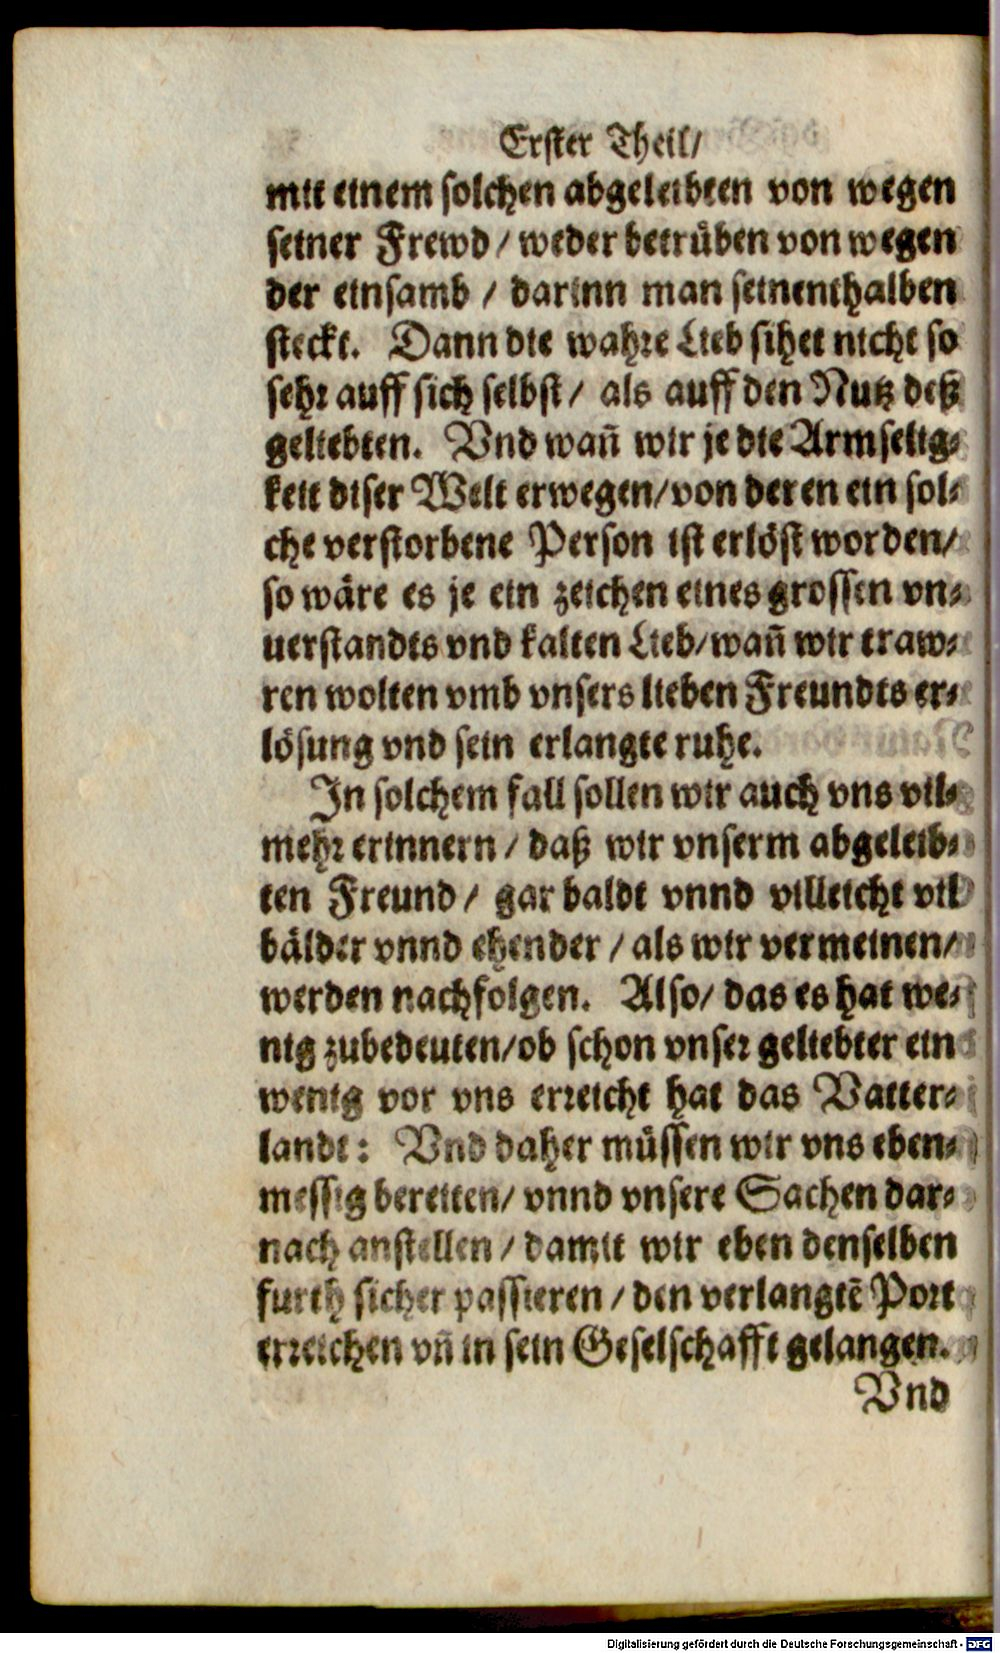 Erster Theil/
mit einem solchen abgeleibten von wegen
seiner Frewd / weder betrüben von wegen
der einsamb / darinn man seinenthalben
steckt. Dann die wahre Lieb sihet nicht so
sehr auff sich selbst / als auff den Nutz deß
geliebten. Vnd wañ wir je die Armselig⸗
keit diser Welt erwegen/von deren ein sol⸗
che verstorbene Person ist erlöst worden/
so wäre es je ein zeichen eines grossen vn⸗
uerstandts vnd kalten Lieb/wañ wir traw⸗
ren wolten vmb vnsers lieben Freundts er⸗
lösung vnd sein erlangte ruhe.
In solchem fall sollen wir auch vns vil⸗
mehr erinnern / daß wir vnserm abgeleib⸗
ten Freund / gar baldt vnnd villeicht vil
bälder vnnd ehender / als wir vermeinen/
werden nachfolgen. Also/ das es hat we⸗
nig zubedeuten/ob schon vnser geliebter ein
wenig vor vns erreicht hat das Vatter⸗
landt: Vnd daher müssen wir vns eben⸗
messig bereiten/ vnnd vnsere Sachen dar⸗
nach anstellen / damit wir eben denselben
furth sicher passieren / den verlangtē Port
erreichen vñ in sein Geselschafft gelangen.
Vnd
Digitalisierung gefördert durch die Deutsche Forschungsgemeinschaft - DFG